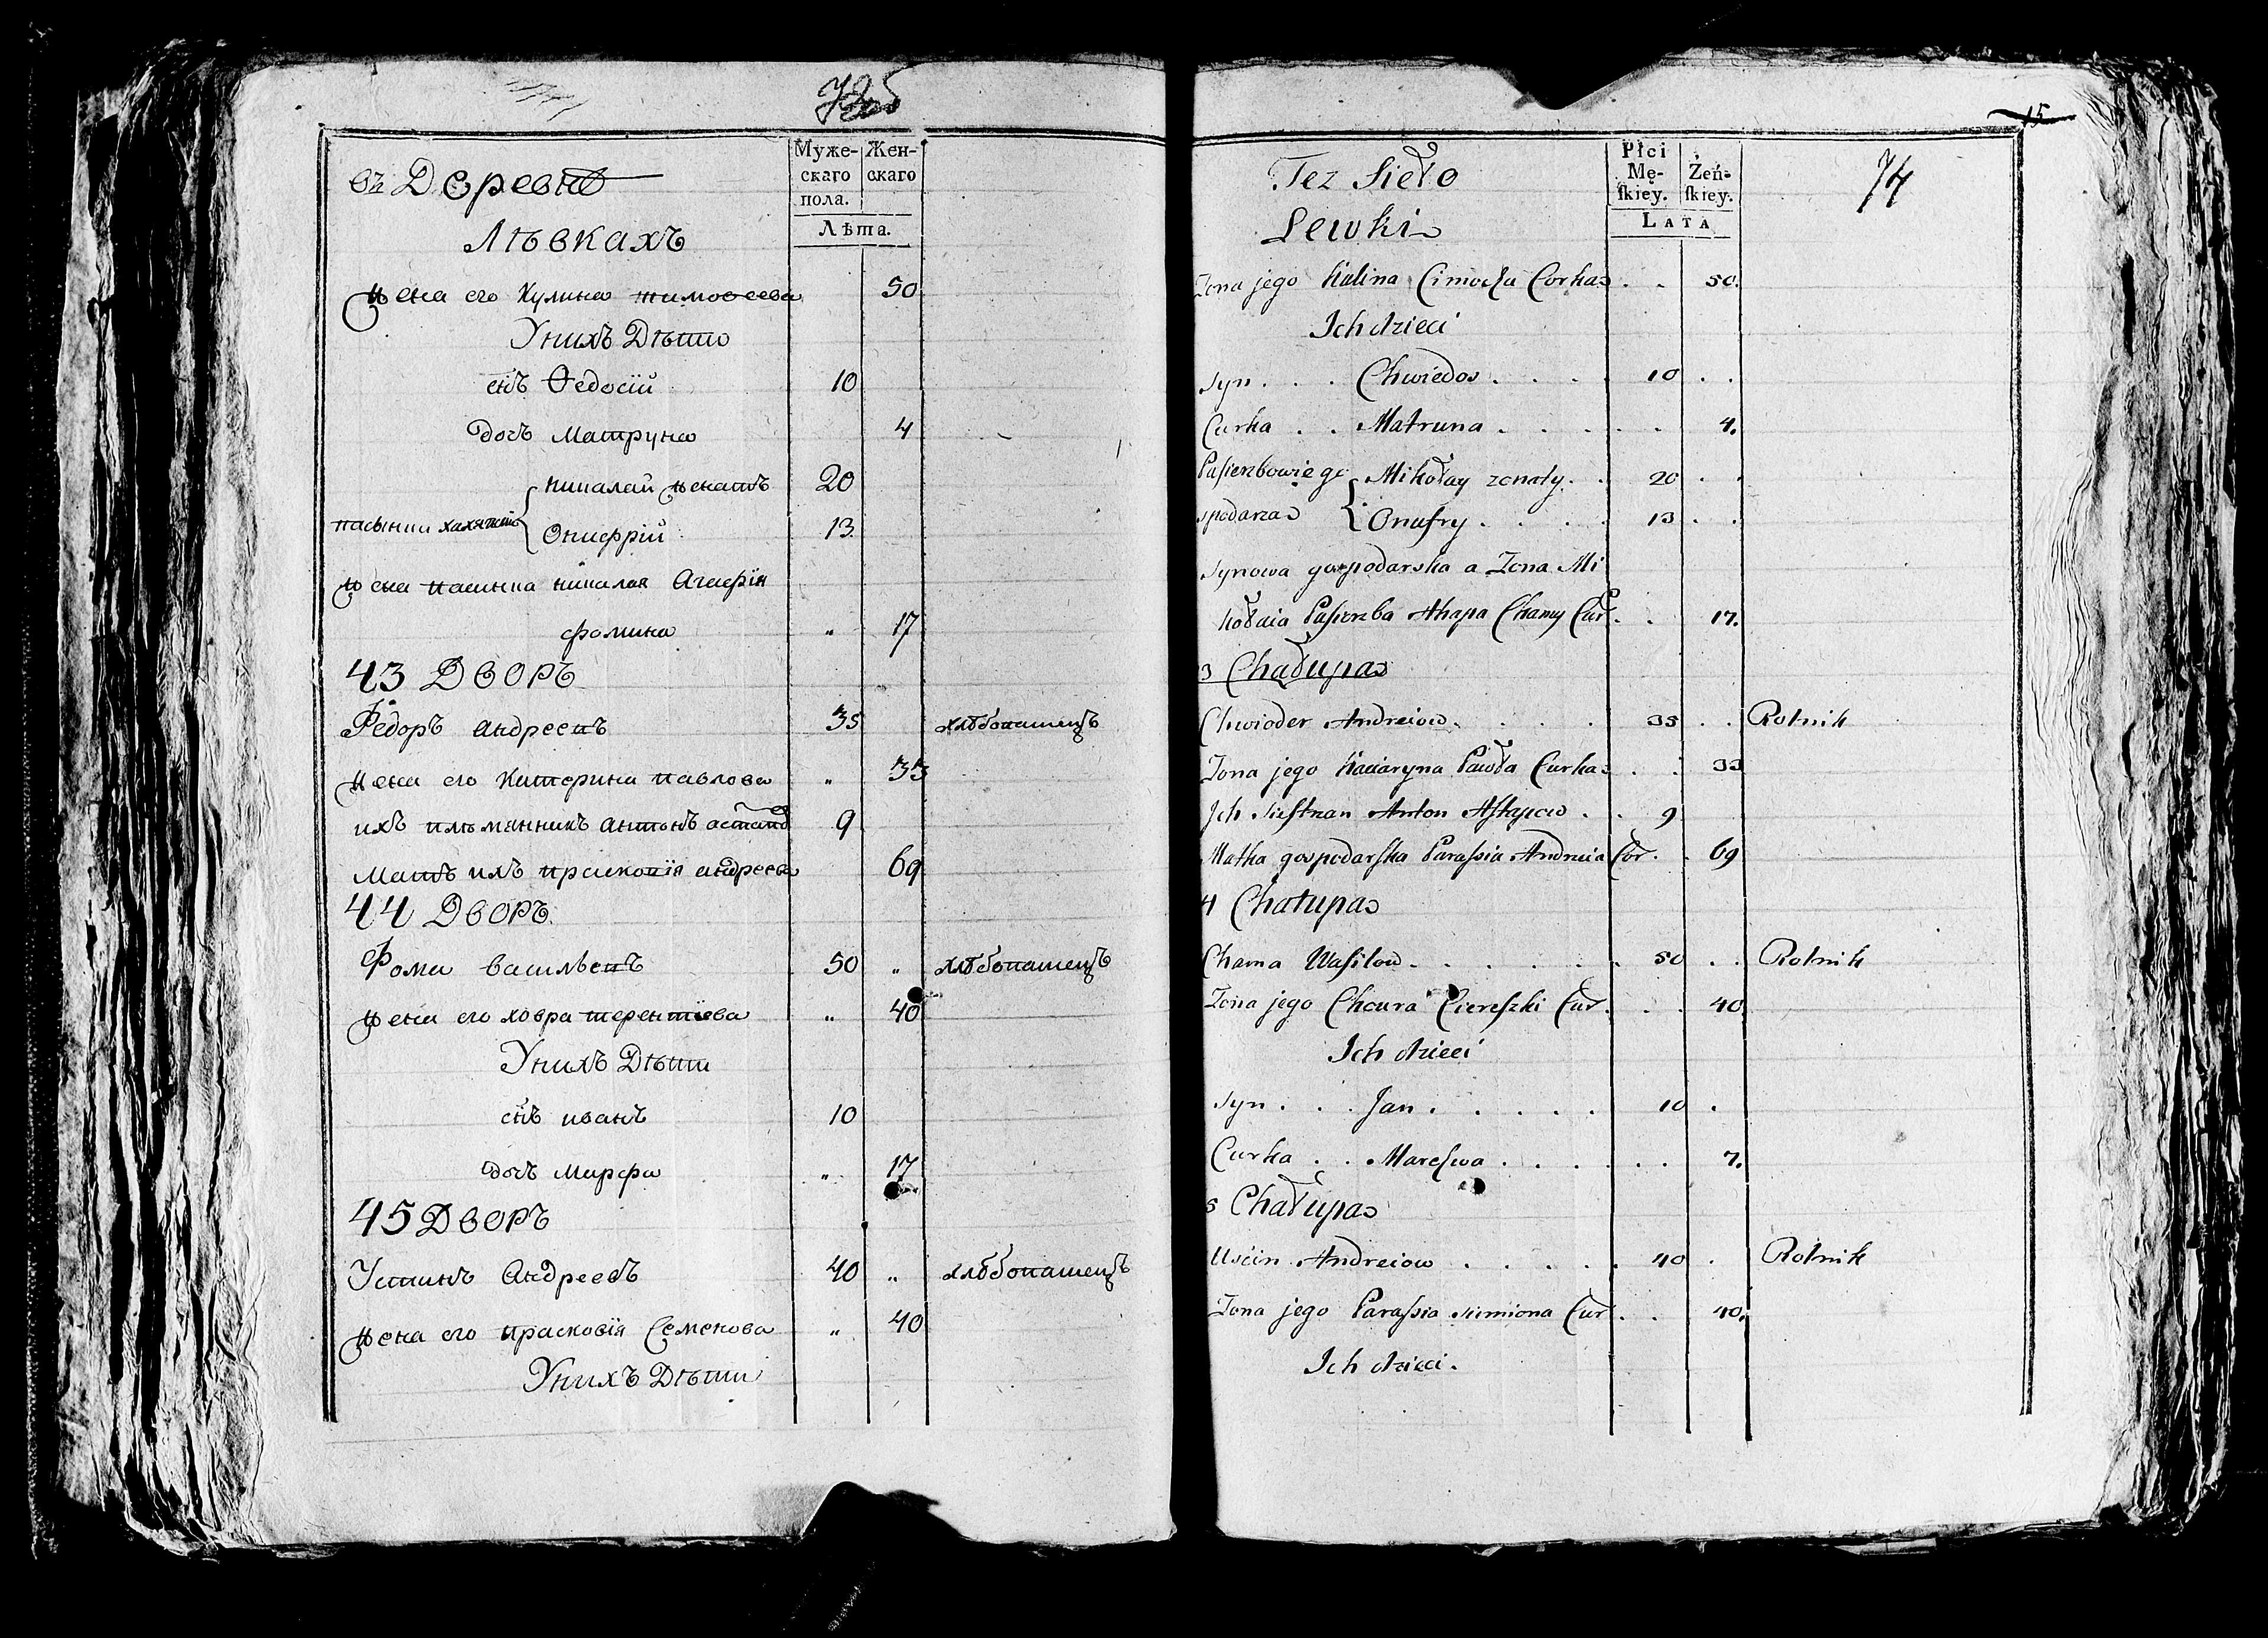 725
въ Деревнѣ
Лѣвкахъ
Муже-
скаго
пола.
Жен-
скаго
Лѣта.
жена его Кулина тимоѳеева 50
У нихъ Дѣти
снъ Ѳедосій 10
дочь Матруна 4
николай женатъ 20
пасынки Онифрій 13
жена пасынка николая Агафія
фомина " 17
43 Дворъ
Федоръ андреевъ 35 хлѣбопашецъ
жена его Катерина павлова " 33
ихъ племянникъ антонъ 9
Мать ихъ праскопія андреева 69
44 Дворъ
Фома васильевъ 50 " хлѣбопашецъ
жена его ховра терентіева " 40
У нихъ Дѣти
снъ иванъ 10
дочь Марфа " 17
45 Дворъ
Устинъ Андреевъ 40 " хлѣбопашецъ
жена его прасковія Семенова " 40
У нихъ Дѣти
15
74
Tez Sieło
Lewki
Płci
Mę-
ſkiey.
Żeń-
ſkiey.
LATA
Zona jego Kulina Cimocha Corka . . 50.
Ich dzieci
Syn . . . Chwiedos . . . . 10 . .
Curka . . Matruna . . . . . . 4.
Pasierzbowie go Mikołay zonaty . . 20 . .
spodarza Onufry . . . . 13 . .
Synowa gospodarska a Zona Mi
kołaia Pasierzba Ahapa Chamy Cur . . 17.
3 Chałupa
Chwioder Andreiow . . . . 35 . . Rolnik
Zona jego Kaciaryna Pawła Curka . . 33
Ich Siestrzan Anton Astapow . . 9
Matka gospodarska Parassia Andreia Cor . . 69
4 Chałupa
Chama Wasilow . . . . . . 50 . . Rolnik
Zona jego Chewra Cereszki Cur . . . 40
Ich dzieci
Syn . . . Jan . . . . . 10 .
Curka . . Mareswa . . . . . . 7.
5 Chałupa
Uscin Andreiow . . . . . 40 . Rolnik
Zona jego Parassia Simiona Cur . . 40.
Ich dzieci.